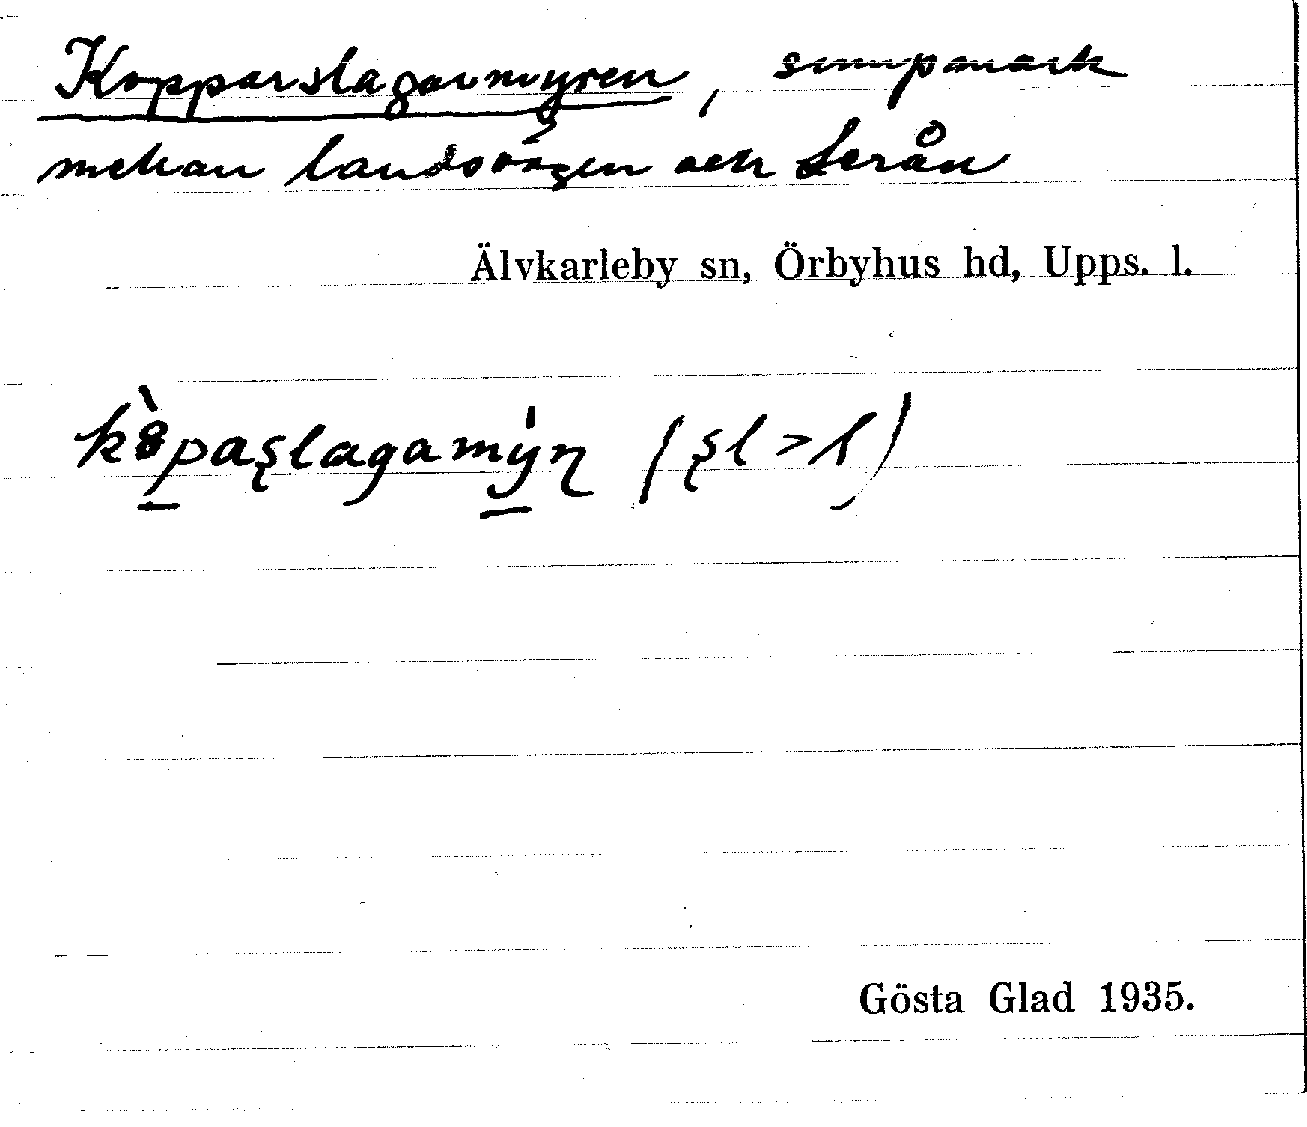 Kopparslagarmyren, sumpmark
mellan landsvägen och Lerån
Älvkarleby sn, Örbyhus hd, Upps. l.
Gösta Glad 1935.